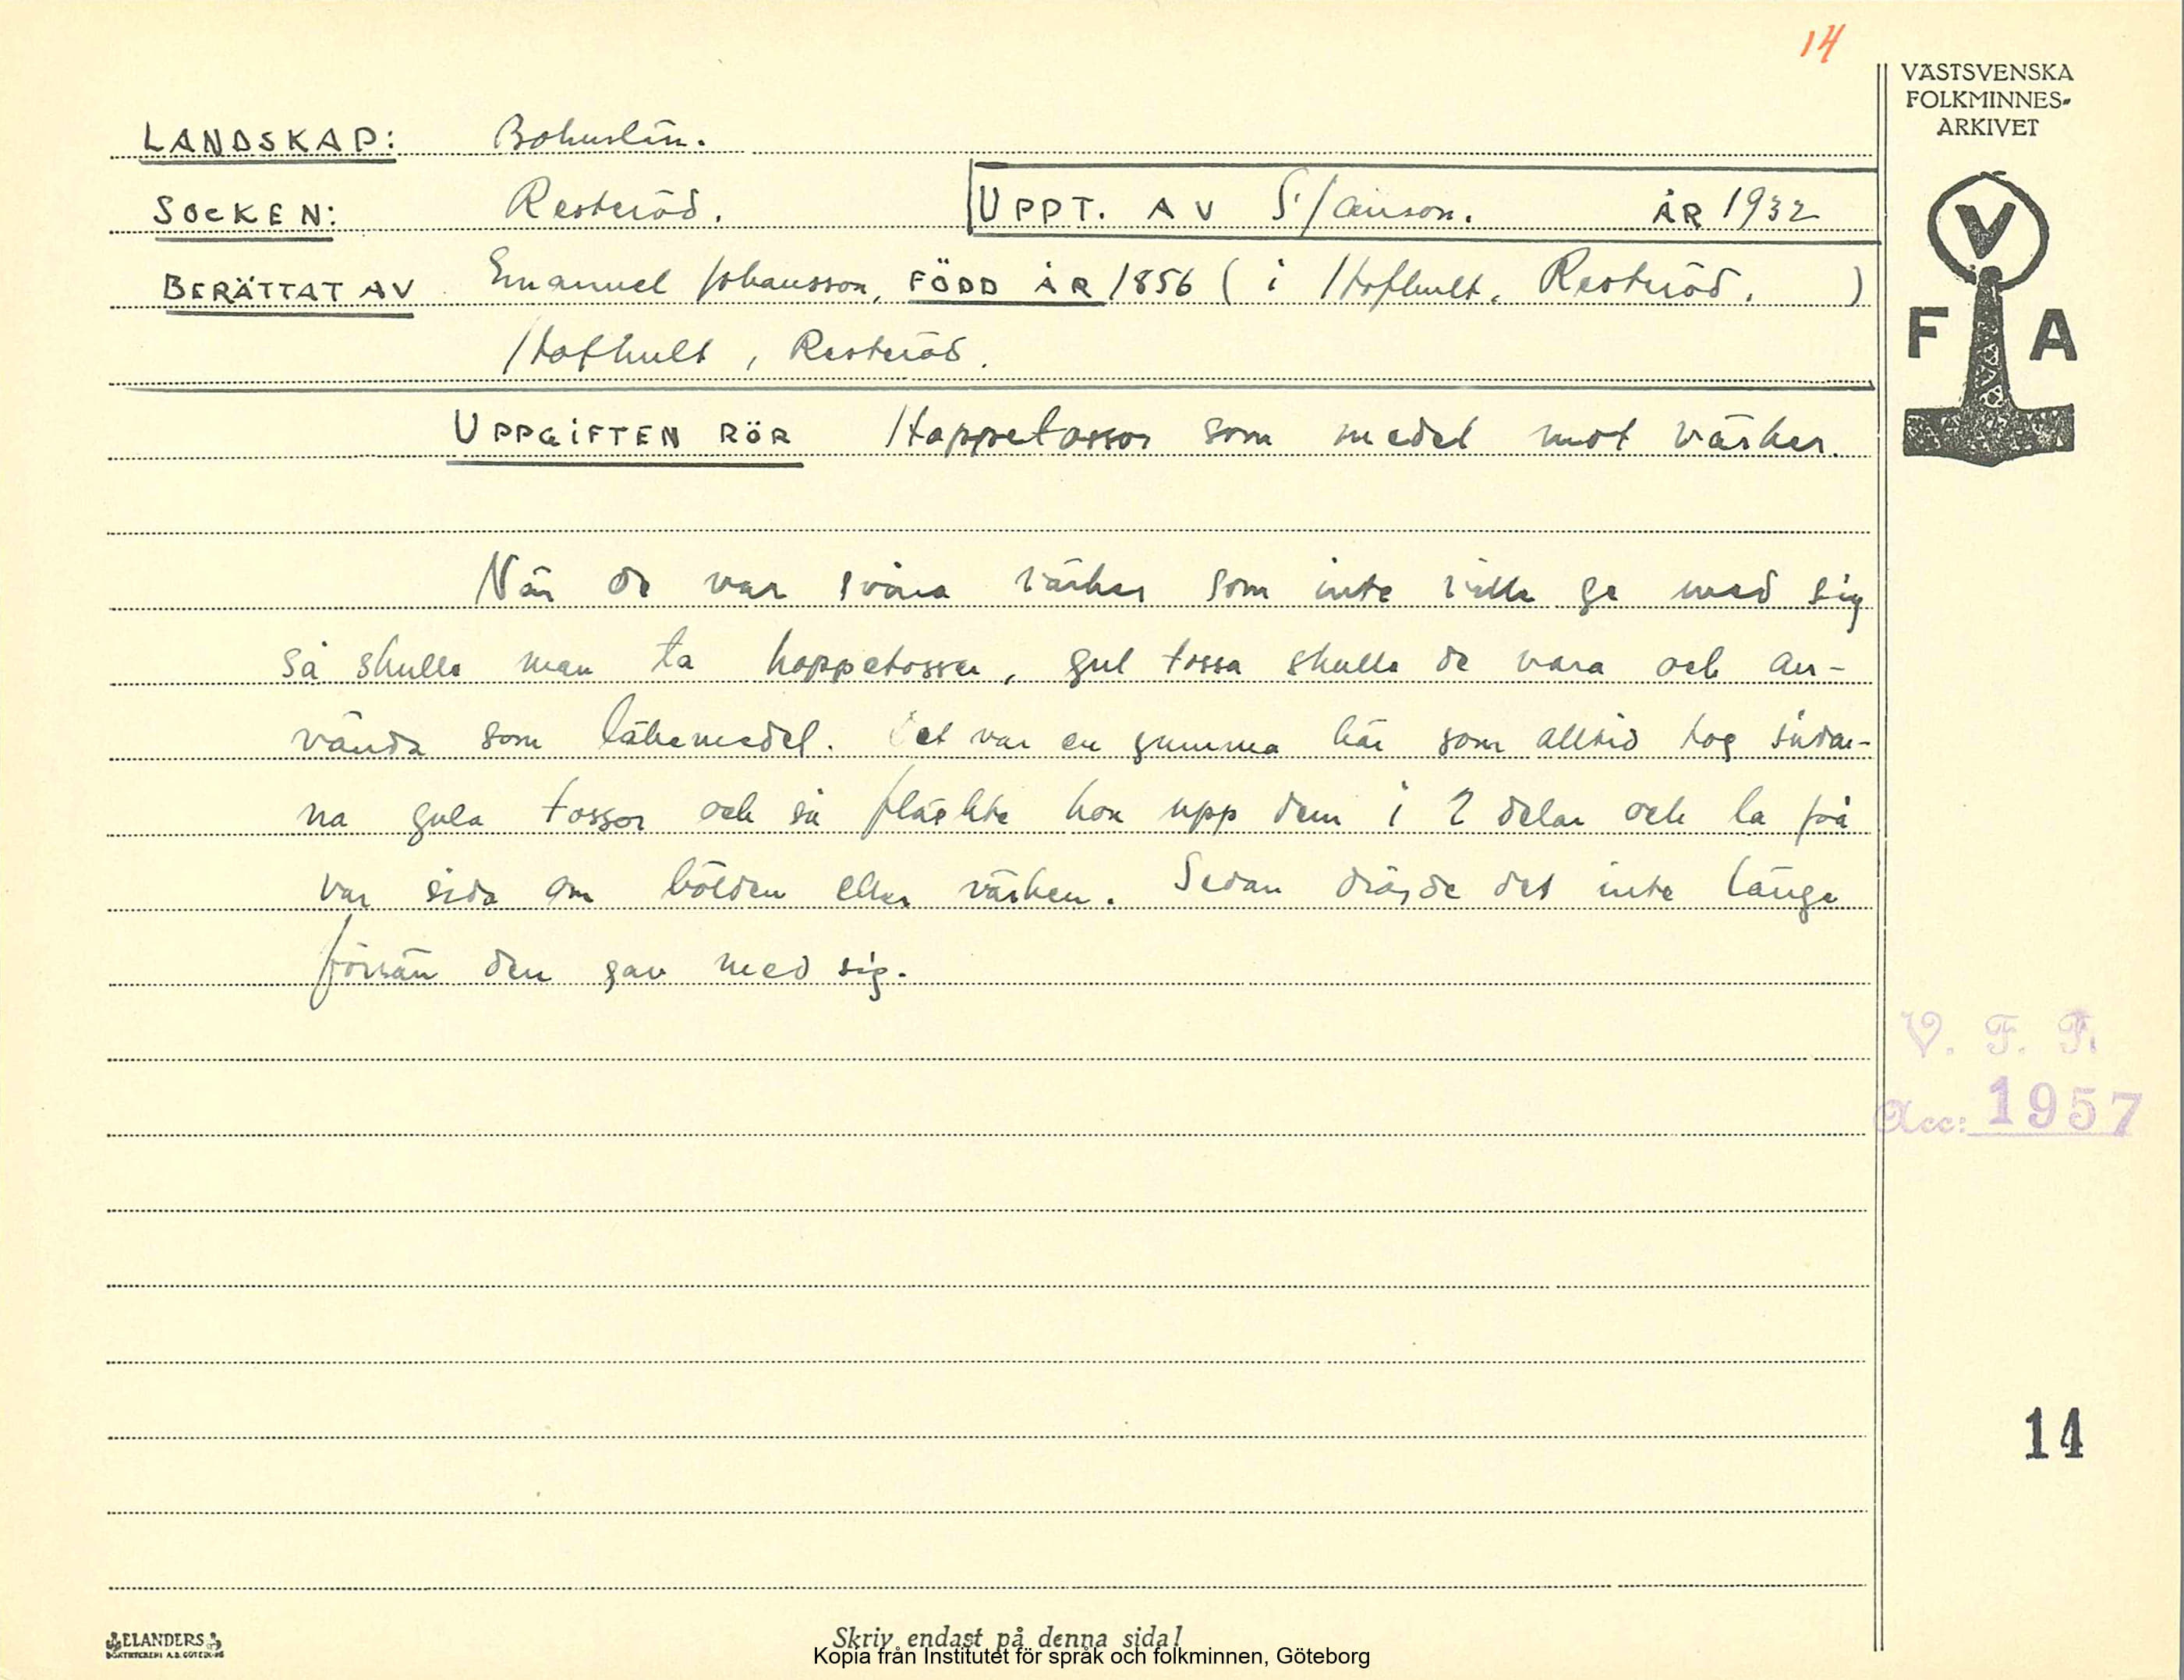 14
VÄSTSVENSKA
FOLKMINNES-
ARKIVET
LANDSKAP: Bohuslän.
SOCKEN: Resteröd. UPPT. AV S. Janson. ÅR 1932
BERÄTTAT AV Emanuel Johansson, FÖDD ÅR 1856 (i Hofhult, Resteröd. )
Hofhult, Resteröd.
V
F A
UPPGIFTEN RÖR Hoppetossor som medel mot värker.
När de var svåra värker som inte ville ge med sig
så skulle man ta hoppetosser, gul tossa skulle de vara och an-
vända som läkemedel. Det var en gumma här som alltid tog sådan-
na gula tossor och så fläckte hon upp dem i 2 delar och la på
var sida om bölden eller värken. Sedan dröjde det inte länge
förrän den gav med sig.
V. F. F.
Acc: 1957
14
ELANDERS
BOKTRYCKERI A.B. GÖTEBORG
Skriv endast på denna sida!
Kopia från Institutet för språk och folkminnen, Göteborg